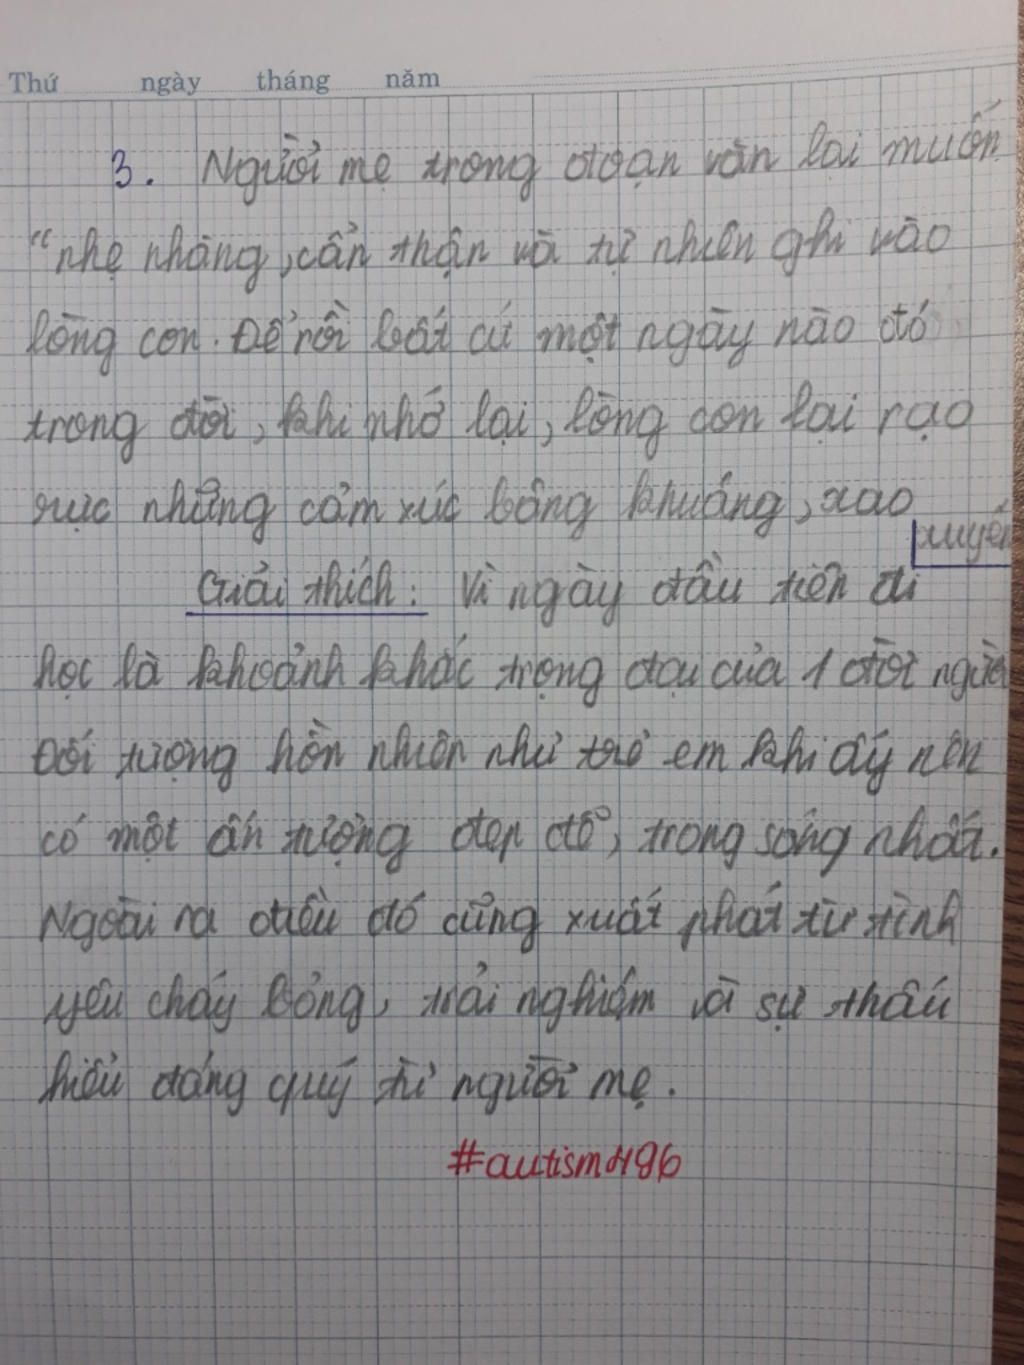 Thứ ngày tháng năm
3. Người mẹ trong đoạn văn lại muốn
“nhẹ nhàng, cẩn thận và tự nhiên ghi vào
lòng con. Để rồi bất cứ một ngày nào đó
trong đời, khi nhớ lại, lòng con lại rạo
rực những cảm xúc bâng khuâng, xao
xuyến
Giải thích: Vì ngày đầu tiên đi
học là khoảnh khắc trọng đại của 1 đời người
Đối tượng hồn nhiên như trẻ em khi ấy nên
có một ấn tượng đẹp đẽ, trong sáng nhất.
Ngoài ra điều đó cũng xuất phát từ tình
yêu cháy bỏng, trải nghiệm và sự thấu
hiểu đáng quý từ người mẹ.